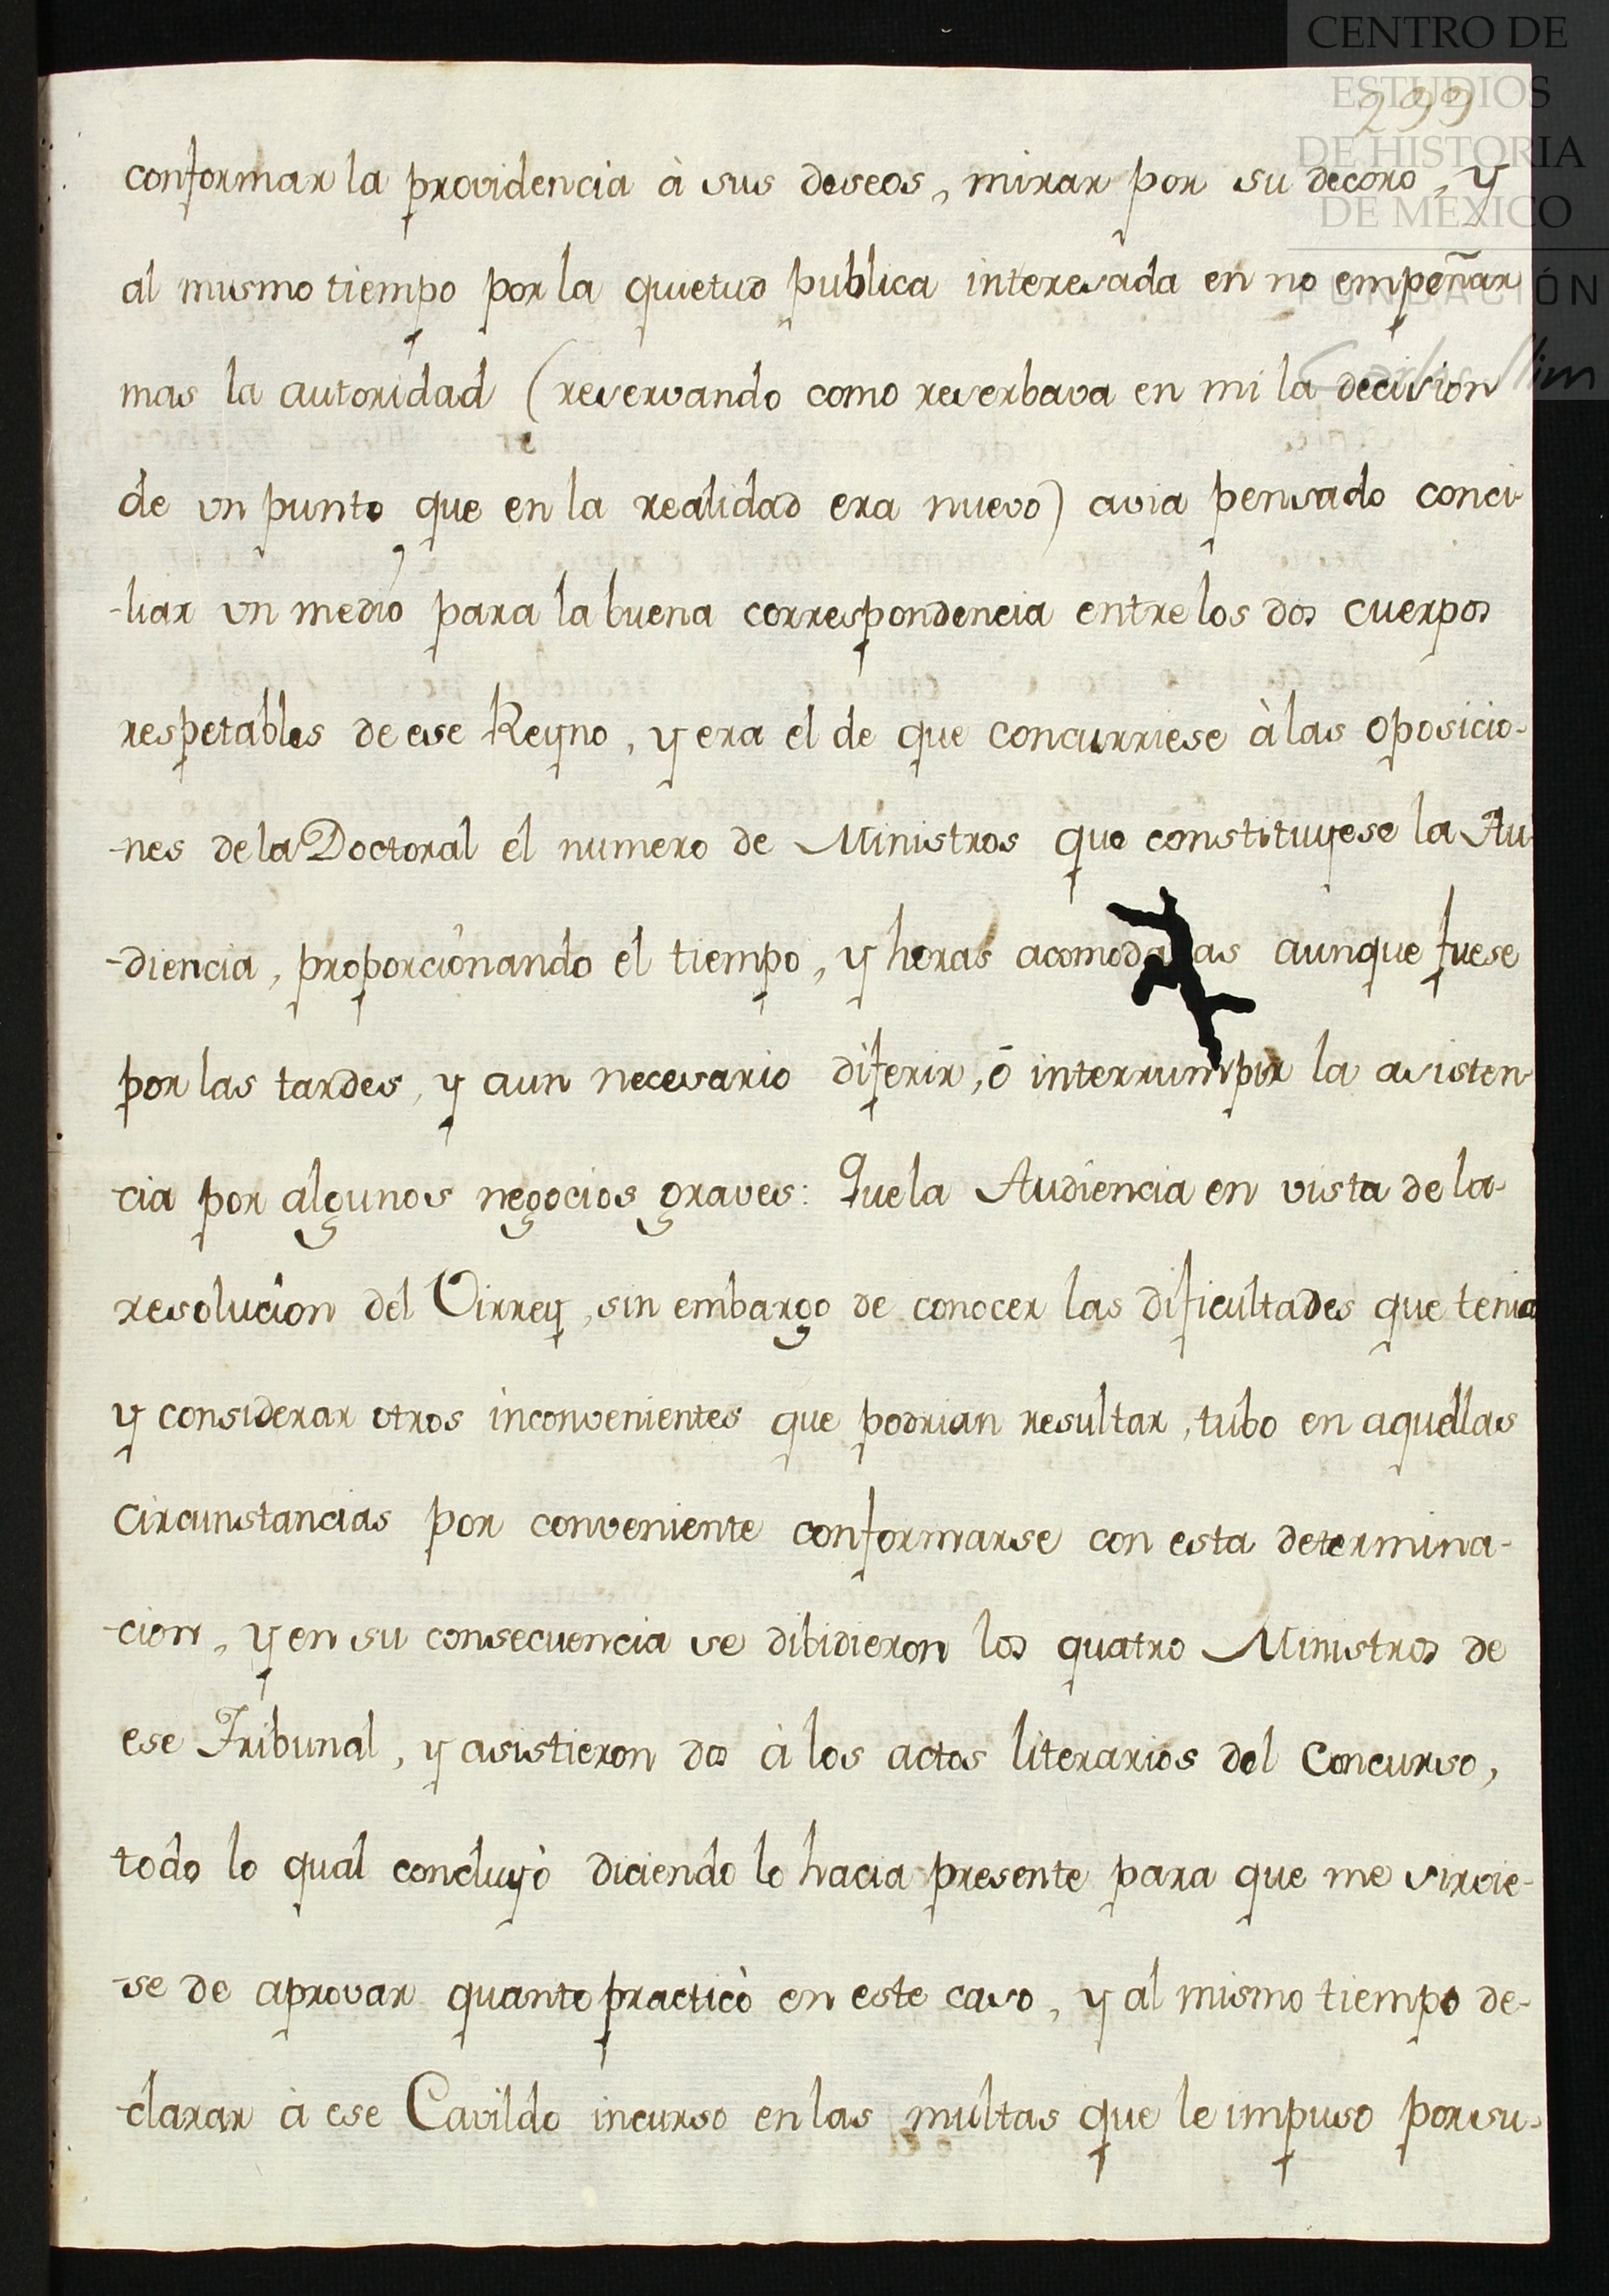 CENTRO DE
ESTUDIOS
DE HISTORIA
DE MÉXICO
FUNDACIÓN
Carlos Slim
299
conformar la providencia à sus deseos, mirar por su decoro, y
al mismo tiempo por la quietud publica interesada en no empeñar
mas la autoridad (reservando como reserbava en mi la decision
de un punto, que en la realidad era nuevo) avia pensado conci-
-liar un medio para la buena correspondencia entre los dos cuerpos
respetables de ese Reyno, y era el de que concurriese à las oposicio-
-nes de la Doctoral el numero de Ministros que constituyese la Au-
-diencia, proporcionando el tiempo, y horas acomodadas aunque fuese
por las tardes, y aun necesario diferir, ó interrumpir la asisten-
-cia por algunos negocios graves: Que la Audiencia en vista de la-
resolucion del Virrey, sin embargo de conocer las dificultades que tenia
y considerar otros inconvenientes que podrian resultar, tubo en aquellas
circunstancias por conveniente conformarse con esta determina-
-cion, y en su consecuencia se dibidieron los quatro Ministros de
ese Tribunal, y asistieron dos à los actos literarios del Concurso,
todo lo qual concluyò diciendo lo hacia presente para que me sirvie-
-se de aprovar quanto practicò en este caso, y al mismo tiempo de-
-clarar à ese Cavildo incurso en las multas que le impuso por su-